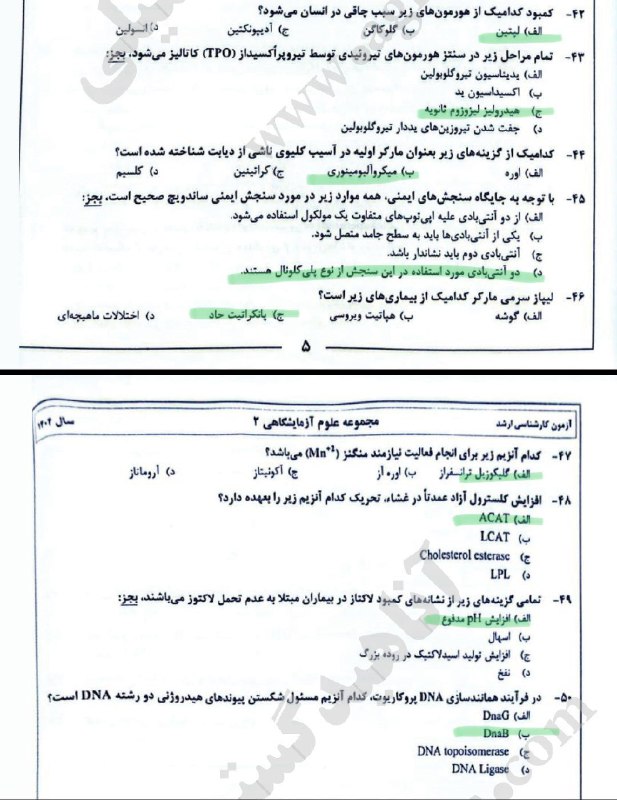 ۴۲- کمبود کدامیک از هورمون‌های زیر سبب چاقی در انسان می‌شود؟
الف) لپتین ب) گلوکاگن ج) آدیپونکتین د) انسولین
۴۳- تمام مراحل زیر در سنتز هورمون‌های تیروئیدی توسط تیروپراکسیداز (TPO) کاتالیز می‌شود، بجز:
الف) یدیناسیون تیروگلوبولین
ب) اکسیداسیون ید
ج) هیدرولیز لیزوزوم ثانویه
د) جفت شدن تیروزین‌های یددار تیروگلوبولین
۴۴- کدامیک از گزینه‌های زیر بعنوان مارکر اولیه در آسیب کلیوی ناشی از دیابت شناخته شده است؟
الف) اوره ب) میکروآلبومینوری ج) کراتینین د) کلسیم
۴۵- با توجه به جایگاه سنجش‌های ایمنی، همه موارد زیر در مورد سنجش ایمنی ساندویچ صحیح است، بجز:
الف) از دو آنتی‌بادی علیه اپی‌توپ‌های متفاوت یک مولکول استفاده می‌شود.
ب) یکی از آنتی‌بادی‌ها باید به سطح جامد متصل شود.
ج) آنتی‌بادی دوم باید نشاندار باشد.
د) دو آنتی‌بادی مورد استفاده در این سنجش از نوع پلی‌کلونال هستند.
۴۶- لیپاز سرمی مارکر کدامیک از بیماری‌های زیر است؟
الف) گوشه ب) هپاتیت ویروسی ج) پانکراتیت حاد د) اختلالات ماهیچه‌ای
۵
آزمون کارشناسی ارشد مجموعه علوم آزمایشگاهی ۲ سال ۱۴۰۲
۴۷- کدام آنزیم زیر برای انجام فعالیت نیازمند منگنز (Mn+2) می‌باشد؟
الف) گلیکوزیل ترانسفراز ب) اوره آز ج) آکونیتاز د) آروماتاز
۴۸- افزایش کلسترول آزاد عمدتاً در غشاء، تحریک کدام آنزیم زیر را بعهده دارد؟
الف) ACAT
ب) LCAT
ج) Cholesterol esterase
د) LPL
۴۹- تمامی گزینه‌های زیر از نشانه‌های کمبود لاکتاز در بیماران مبتلا به عدم تحمل لاکتوز می‌باشند، بجز:
الف) افزایش pH مدفوع
ب) اسهال
ج) افزایش تولید اسیدلاکتیک در روده بزرگ
د) نفخ
۵۰- در فرآیند همانندسازی DNA پروکاریوت، کدام آنزیم مسئول شکستن پیوندهای هیدروژنی دو رشته DNA است؟
الف) DnaG
ب) DnaB
ج) DNA topoisomerase
د) DNA Ligase